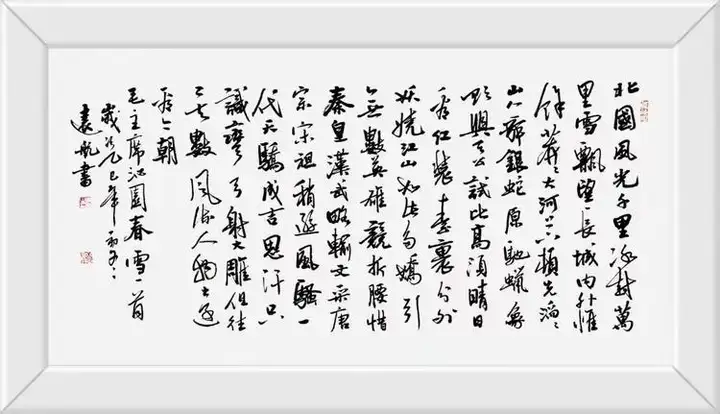 北國風光千里冰封萬
里雪飄望長城內外惟
餘莽〻大河上下頓失滔〻
山舞銀蛇原馳蠟象
欲與天公試比高須晴日
看紅裝素裹分外
妖嬈江山如此多嬌引
無數英雄競折腰惜
秦皇漢武略輸文采唐
宗宋祖稍遜風騷一
代天驕成吉思汗只
識彎弓射大雕俱往
矣數風流人物還
看今朝
毛主席沁園春雪一首
歲巳年
遠航書